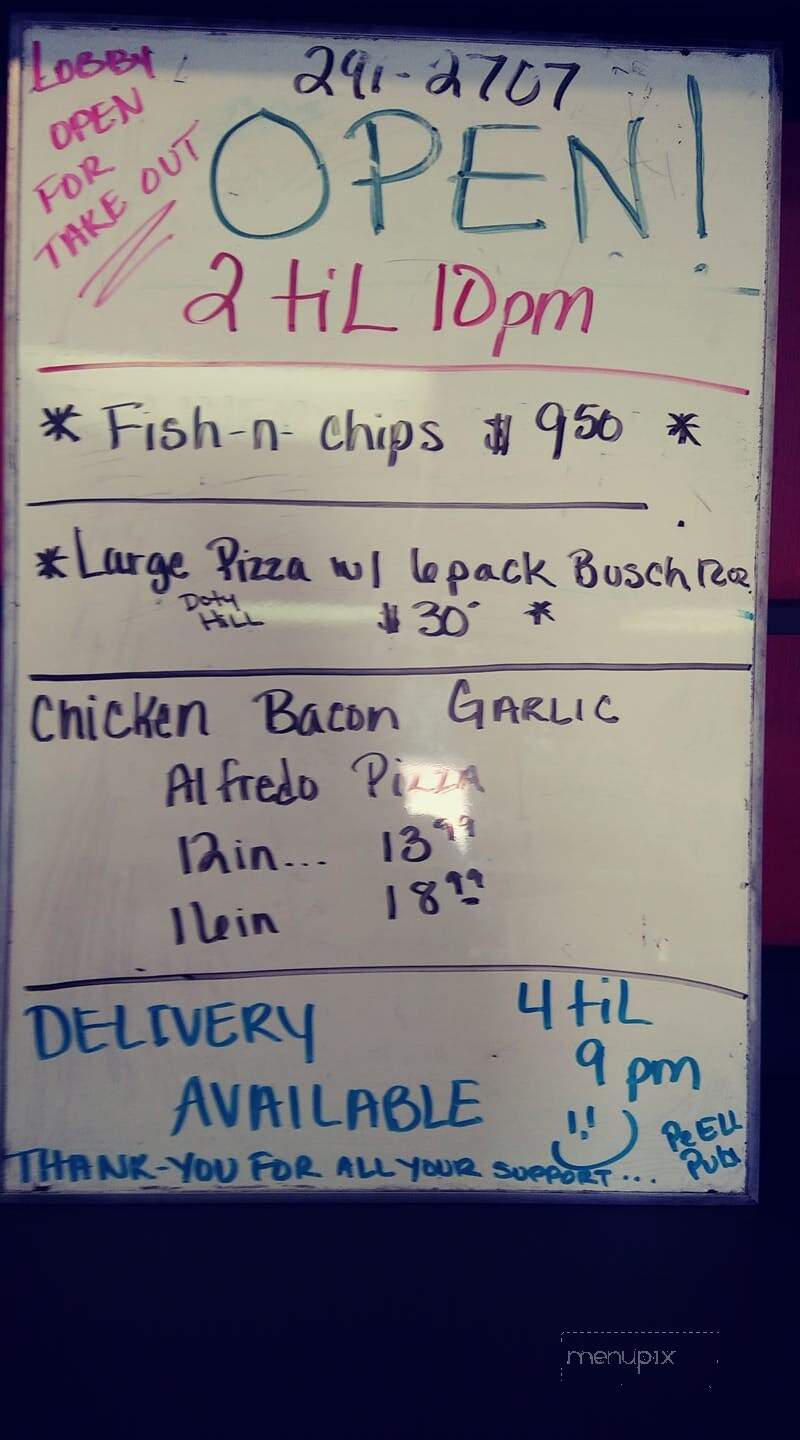 LOBBY
OPEN
FOR
TAKE OUT
291-2707
OPEN!
2 tiL 10pm
* Fish-n-chips $ 9 50 *
*Large Pizza w/ 6pack Busch 12oz.
Doty
HiLL
$ 30 *
Chicken Bacon GARLIC
Alfredo PIZZA
12in... 13 99
16in 18 99
DELIVERY
AVAILABLE
4 tiL
9 pm
THANK-YOU FOR ALL YOUR SUPPORT...
Pe ELL
Pub
menupix